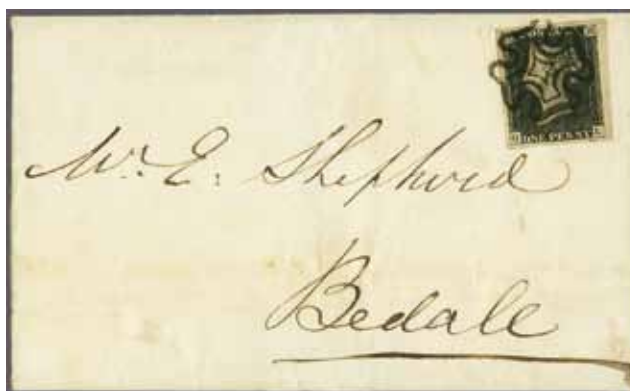 ONE PENNY
Mr. E. Shepherd
Bedale